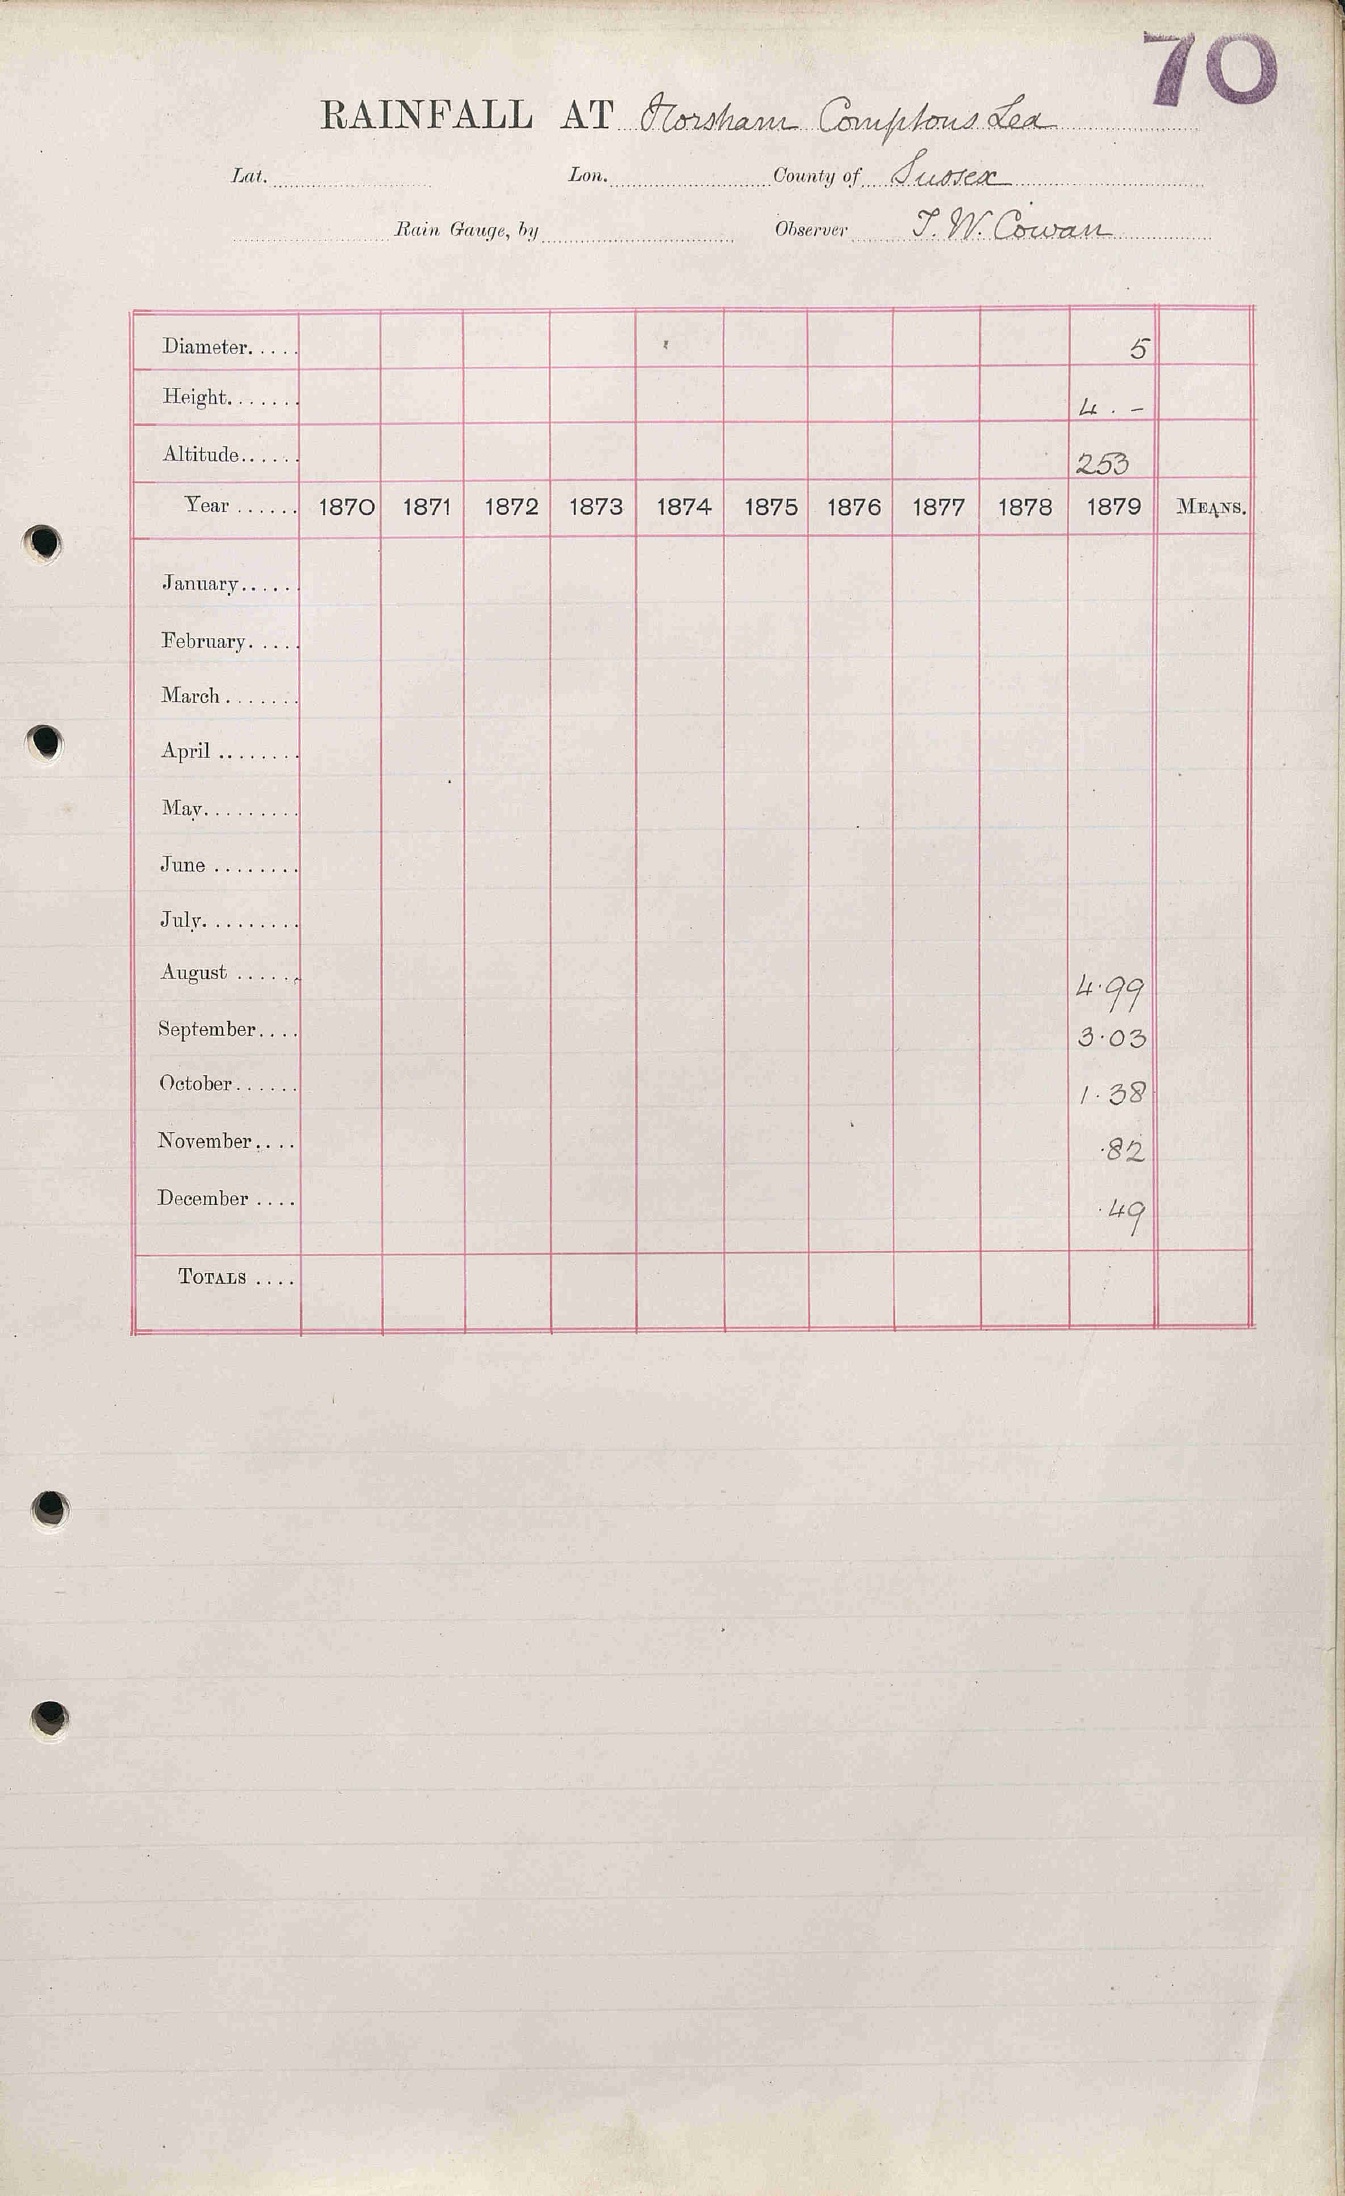 70
RAINFALL AT Horsham Comptons Lea
Lat. Lon. County of Sussex
Rain Gauge, by Observer T. W. Cowan
Diameter..... 5
Height....... 4 . -
Altitude...... 253
Year ...... 1870 1871 1872 1873 1874 1875 1876 1877 1878 1879 MEANS.
January......
February.....
March.......
April ........
May.........
June ........
July.........
August ...... 4.99
September.... 3.03
October...... 1.38
November.... .82
December .... .49
TOTALS ....